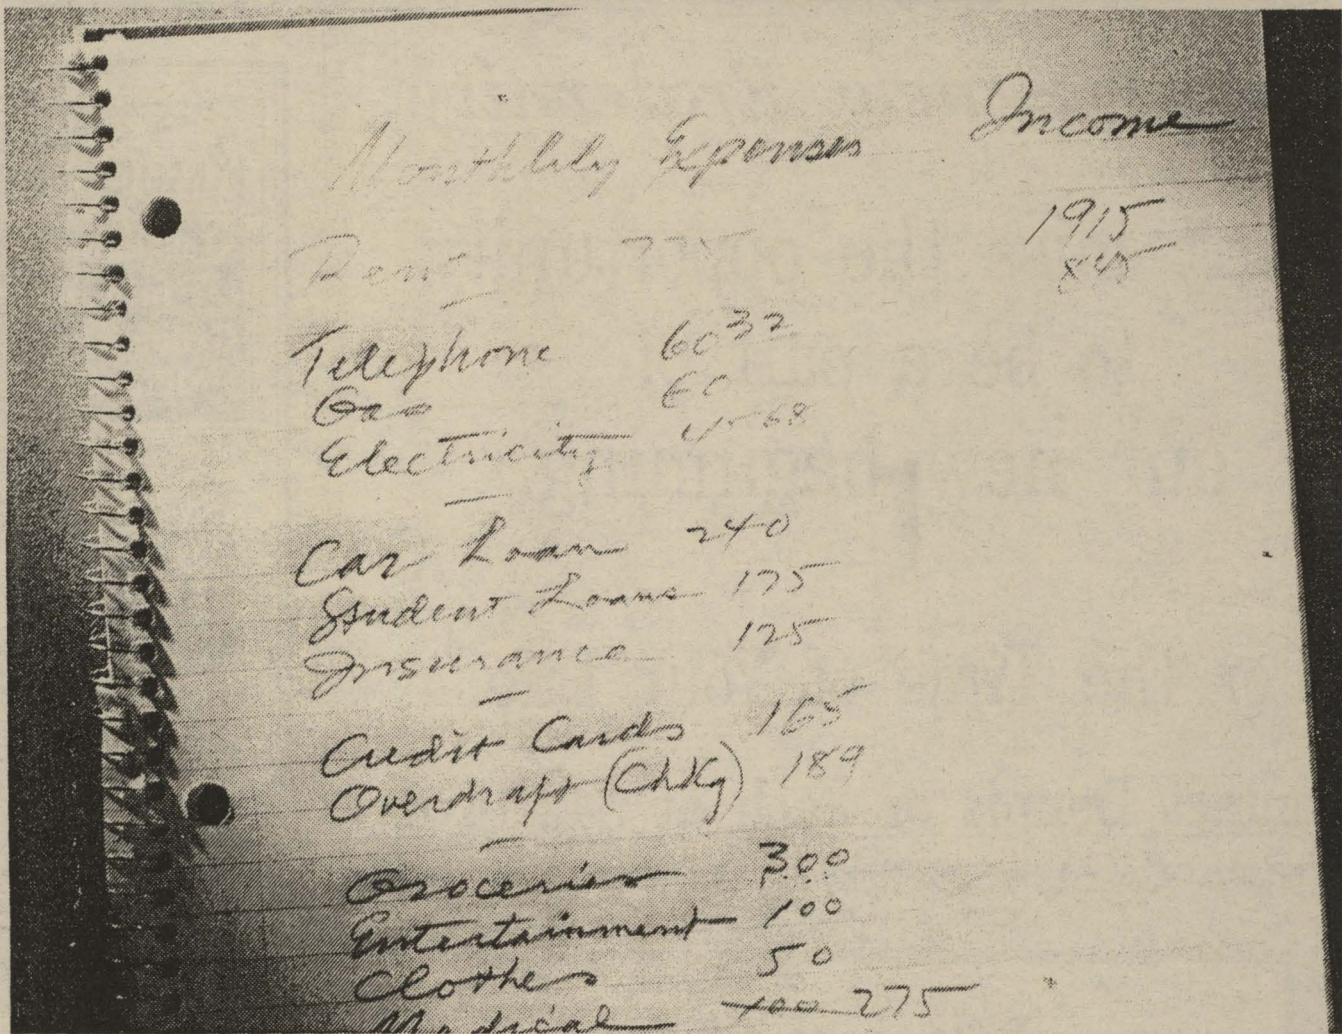 Monthly Expenses Income
1915
Rent 775
845
Telephone 60³²
Gas 60
Electricity 45 68
Car Loan 240
Student Loans 175
Insurance 125
Credit Cards 165
Overdraft (ChKg) 189
Groceries 300
Entertainment 100
Clothes 50
Medical 275